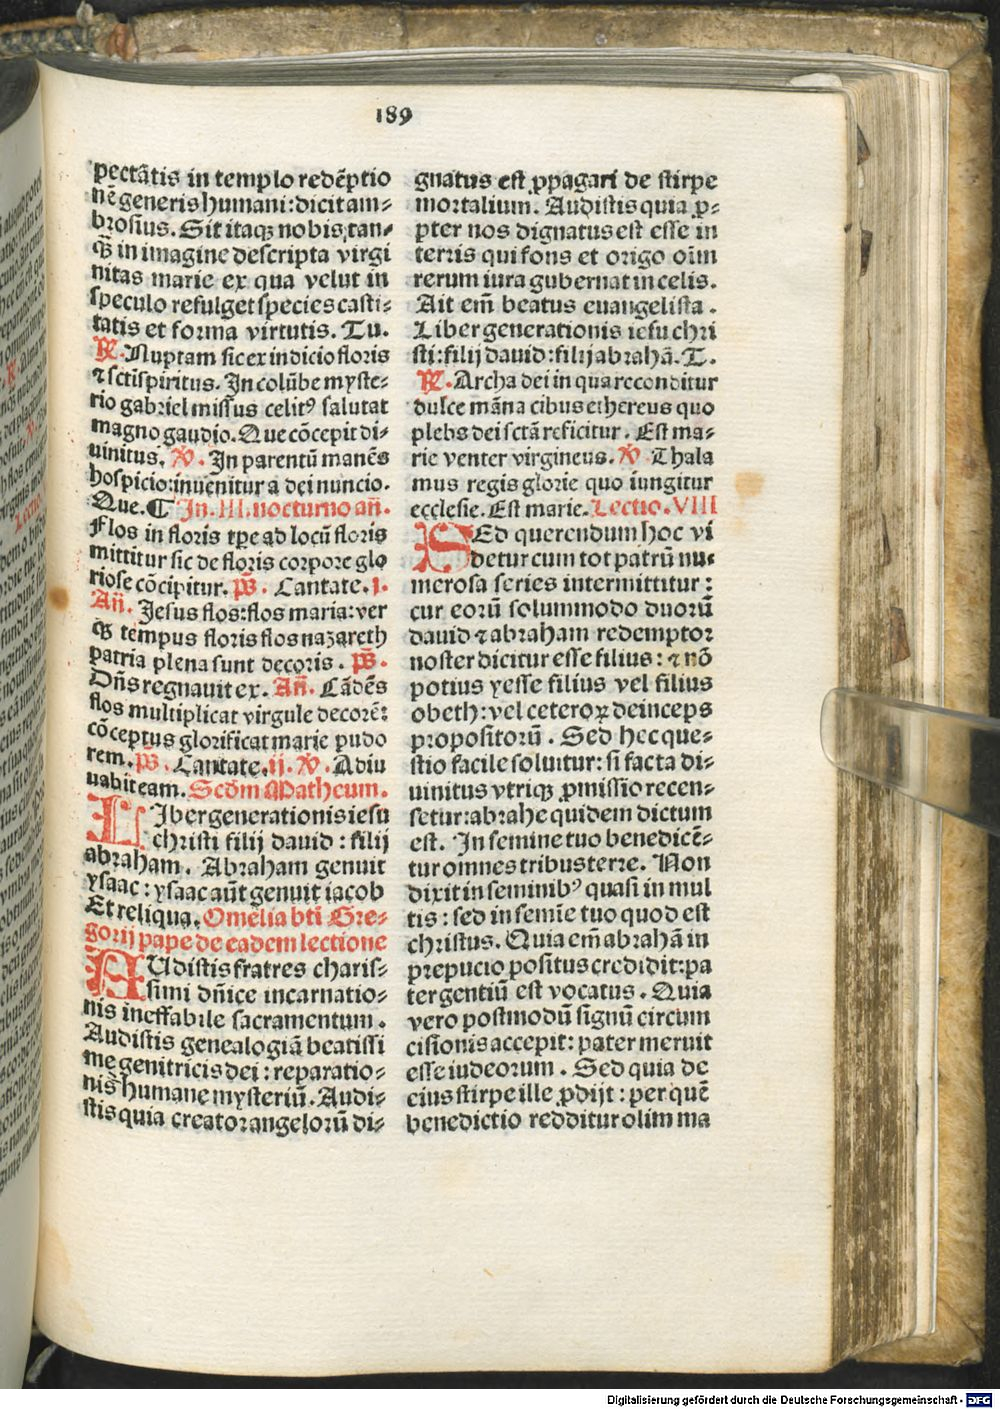 189
pectãtis in templo redẽptio
nẽ generis humani: dicit am⸗
brosius. Sit itaqꝫ nobis tan⸗
qꝫ̃ in imagine descripta virgi
nitas marie ex qua velut in
speculo refulget species casti⸗
tatis et forma virtutis. Tu.
℟. Nuptam sic ex indicio floris
⁊ sctĩspiritus. In colũbe myste⸗
rio gabriel missus celitꝰ salutat
magno gaudio. Que cõcepit di⸗
uinitus. ℣. In parentũ manẽs
hospicio: inuenitur a dei nuncio.
Que. ¶ In. III. nocturno añ.
Flos in floris tꝑe ad locũ floris
mittitur sic de floris corpore glo
riose cõcipitur. p̃s. Cantate. i.
Añ. Jesus flos: flos maria: ver
qꝫ tempus floris flos nazareth
patria plena sunt decoris. p̃s.
Dñs regnauit ex. Añ. Cãdẽs
flos multiplicat virgule decorẽ:
cõceptus glorificat marie pudo
rem. p̃s. Cantate. ij. ℣. Adiu
uabit eam. Scd̃m Matheum.
LIber generationis iesu
christi filij dauid: filij
abraham. Abraham genuit
ysaac: ysaac aũt genuit iacob
Et reliqua. Omelia bti Gre⸗
gorij pape de eadem lectione
AUdistis fratres charis⸗
simi dñice incarnatio⸗
nis ineffabile sacramentum.
Audistis genealogiã beatissi
me genitricis dei: reparatio⸗
nis humane mysteriũ. Audi⸗
stis quia creator angelorũ di⸗
gnatus est ꝓpagari de stirpe
mortalium. Audistis quia ꝓ⸗
pter nos dignatus est esse in
terris qui fons et origo oĩm
rerum iura gubernat in celis.
Ait em̃ beatus euangelista.
Liber generationis iesu chri
sti: filij dauid: filij abrahã. T.
℟. Archa dei in qua reconditur
dulce mãna cibus ethereus quo
plebs dei sctã reficitur. Est ma⸗
rie venter virgineus. ℣. Thala
mus regis glorie quo iungitur
ecclesie. Est marie. Lectio. VIII
SEd querendum hoc vi
detur cum tot patrũ nu⸗
merosa series intermittitur:
cur eorũ solummodo duorũ
dauid ⁊ abraham redemptor
noster dicitur esse filius: ⁊ nõ
potius yesse filius vel filius
obeth: vel ceteroꝝ deinceps
propositorũ. Sed hec que⸗
stio facile soluitur: si facta di⸗
uinitus vtriqꝫ ꝓmissio recen⸗
setur: abrahe quidem dictum
est. In semine tuo benedicẽ⸗
tur omnes tribus terre. Non
dixit in seminibꝰ quasi in mul
tis: sed in semĩe tuo quod est
christus. Quia em̃ abrahã in
prepucio positus credidit: pa
ter gentiũ est vocatus. Quia
vero postmodũ signũ circum
cisionis accepit: pater meruit
esse iudeorum. Sed quia de
eius stirpe ille ꝓdijt: per quẽ
benedictio redditur olim ma
Digitalisierung gefördert durch die Deutsche Forschungsgemeinschaft - DFG